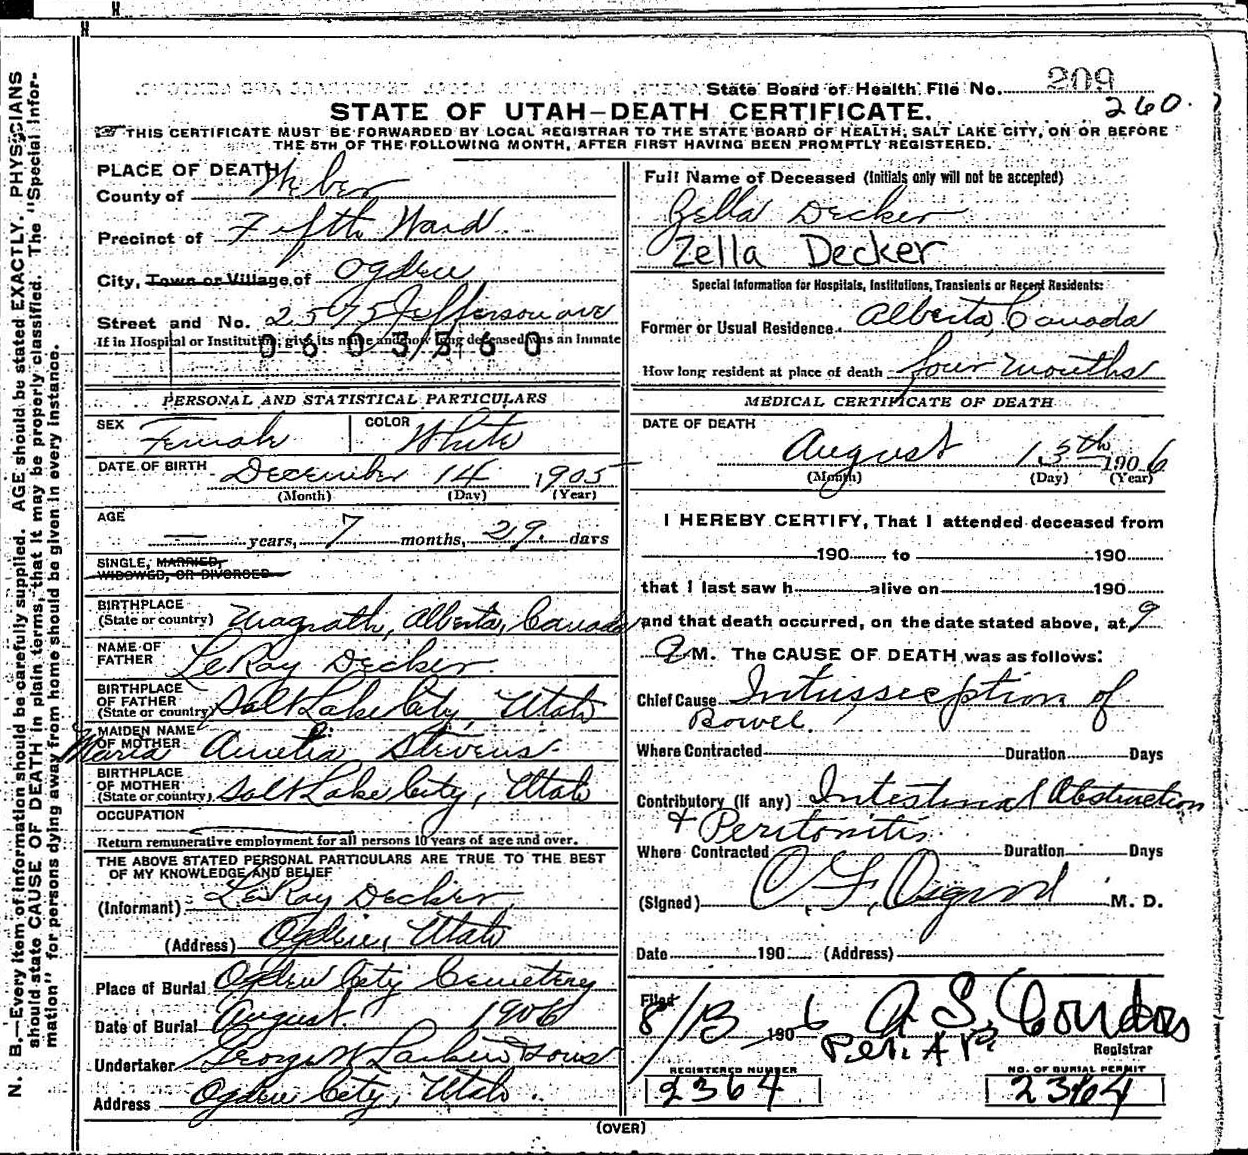 State Board of Health File No. 209
260.
STATE OF UTAH—DEATH CERTIFICATE.
THIS CERTIFICATE MUST BE FORWARDED BY LOCAL REGISTRAR TO THE STATE BOARD OF HEALTH, SALT LAKE CITY, ON OR BEFORE
THE 5TH OF THE FOLLOWING MONTH, AFTER FIRST HAVING BEEN PROMPTLY REGISTERED.
N. B.—Every item of information should be carefully supplied. AGE should be stated EXACTLY. PHYSICIANS
should state CAUSE OF DEATH in plain terms, that it may be properly classified. The "Special Infor-
mation" for persons dying away from home should be given in every instance.
PLACE OF DEATH
County of Weber
Precinct of Fifth Ward
City, Town or Village of Ogden
Street and No. 2595 Jefferson ave
If in Hospital or Institution, give its name and how long deceased was an Inmate
0603560
PERSONAL AND STATISTICAL PARTICULARS
SEX Female COLOR White
DATE OF BIRTH December 14 1905
(Month) (Day) (Year)
AGE — years, 7 months, 29. days
SINGLE, MARRIED,
WIDOWED, OR DIVORCED
BIRTHPLACE
(State or country) Magrath, Alberta, Canada
NAME OF
FATHER LeRay Decker
BIRTHPLACE
OF FATHER
(State or country) Salt Lake City, Utah
MAIDEN NAME
OF MOTHER Maria Amelia Stevens
BIRTHPLACE
OF MOTHER
(State or country) Salt Lake City, Utah
OCCUPATION
Return remunerative employment for all persons 10 years of age and over.
THE ABOVE STATED PERSONAL PARTICULARS ARE TRUE TO THE BEST
OF MY KNOWLEDGE AND BELIEF
(Informant) LeRay Decker
(Address) Ogden, Utah
Place of Burial Ogden City Cemetery
Date of Burial August 1906
Undertaker George W Larkin & Sons
Address Ogden City, Utah.
Full Name of Deceased (Initials only will not be accepted)
Zella Decker
Zella Decker
Special Information for Hospitals, Institutions, Transients or Recent Residents:
Former or Usual Residence Alberta, Canada
How long resident at place of death four months
MEDICAL CERTIFICATE OF DEATH
DATE OF DEATH
August 13th 1906
(Month) (Day) (Year)
I HEREBY CERTIFY, That I attended deceased from
190 to 190
that I last saw h alive on 190
and that death occurred, on the date stated above, at 9
a M. The CAUSE OF DEATH was as follows:
Chief Cause Intussception of
Bowel
Where Contracted Duration Days
Contributory (if any) Intestinal Obstruction
+ Peritonitis
Where Contracted Duration Days
(Signed) O. F. Osgood M. D.
Date 190 (Address)
Filed
8/13 1906 A S. Condon
Per. A P.
Registrar
REGISTERED NUMBER
2364
NO. OF BURIAL PERMIT
2364
(OVER)